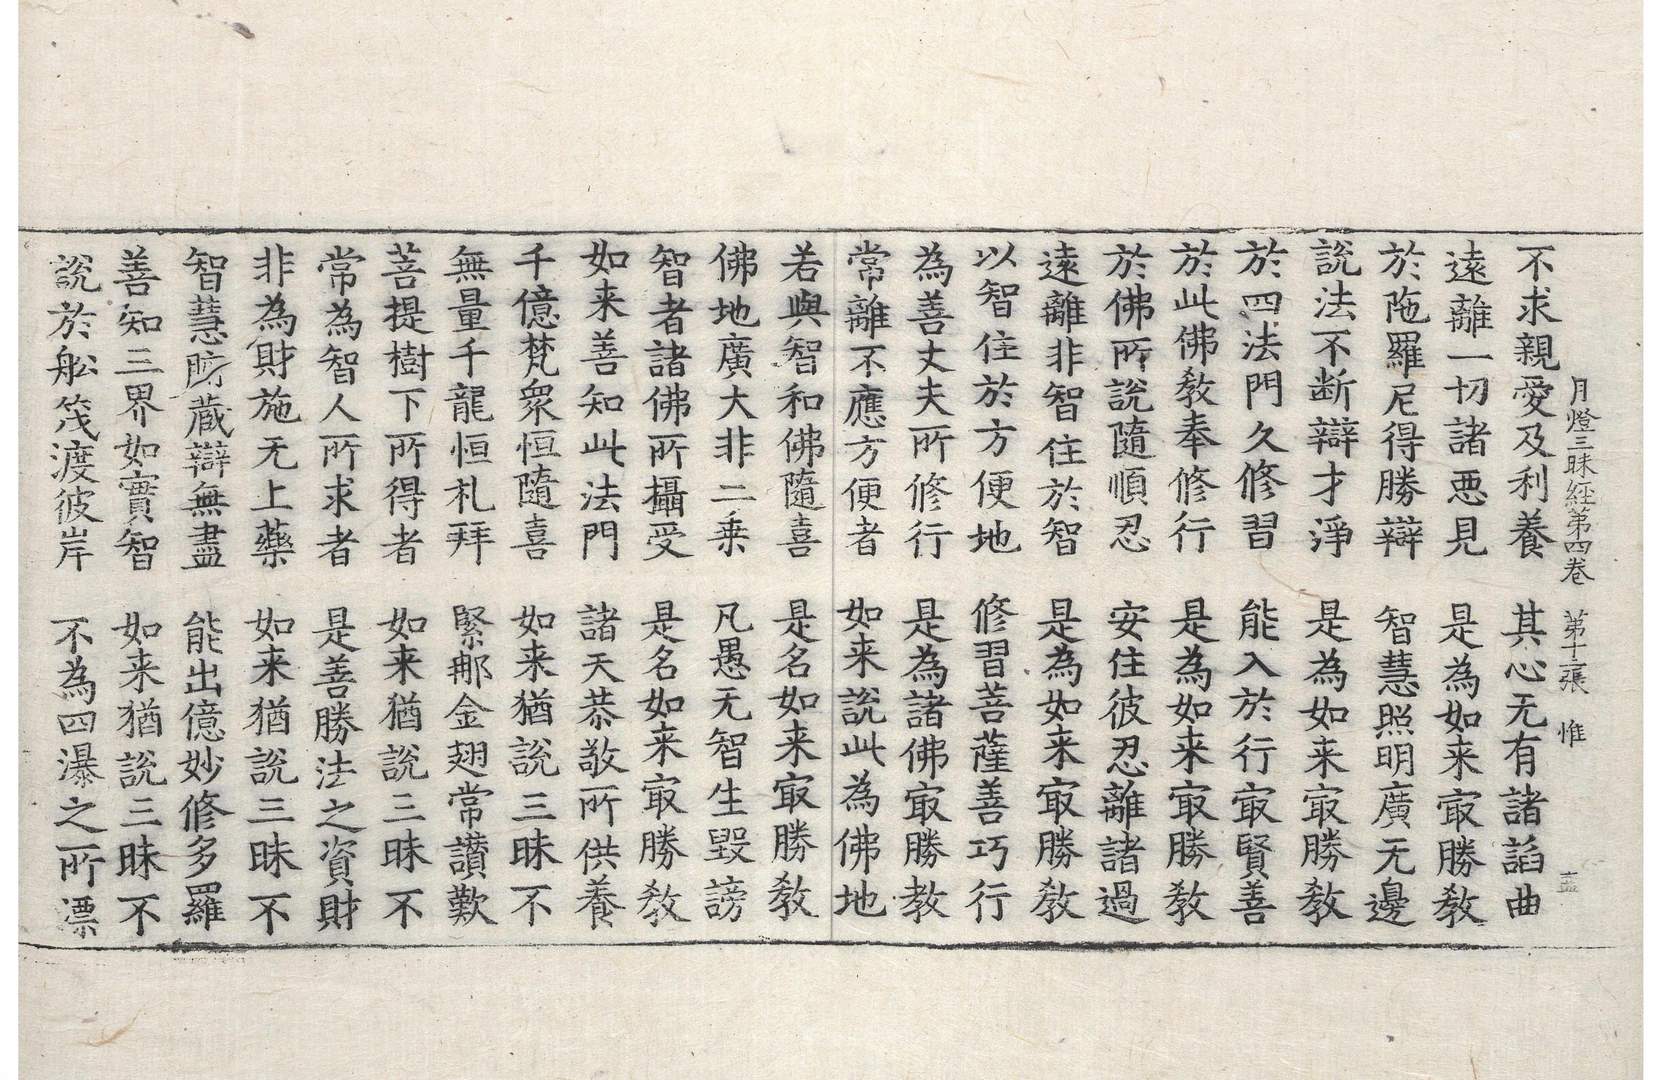 月燈三昧經第四卷 第十張 惟
不求親愛及利養 其心无有諸諂曲
遠離一切諸惡見 是為如来㝡勝敎
於陁羅尼得勝辯 智慧照明廣无邊
說法不断辯才淨 是為如来㝡勝敎
於四法門久修習 能入於行㝡賢善
於此佛敎奉修行 是為如来㝡勝敎
於佛所說隨順忍 安住彼忍離諸過
遠離非智住於智 是為如来㝡勝敎
以智住於方便地 修習菩薩善巧行
為善丈夫所修行 是為諸佛㝡勝教
常離不應方便者 如来說此為佛地
若與智和佛隨喜 是名如来㝡勝敎
佛地廣大非二乗 凡愚无智生毀謗
智者諸佛所攝受 是名如来㝡勝敎
如来善知此法門 諸天恭敬所供養
千億梵衆恒隨喜 如来猶說三昧不
無量千龍恒礼拜 緊那金翅常讃歎
菩提樹下所得者 如来猶說三昧不
常為智人所求者 是善勝法之資財
非為財施无上藥 如来猶說三昧不
智慧財蔵辯無盡 能出億妙修多羅
善知三界如實智 如来猶說三昧不
說於舩筏渡彼岸 不為四瀑之所漂